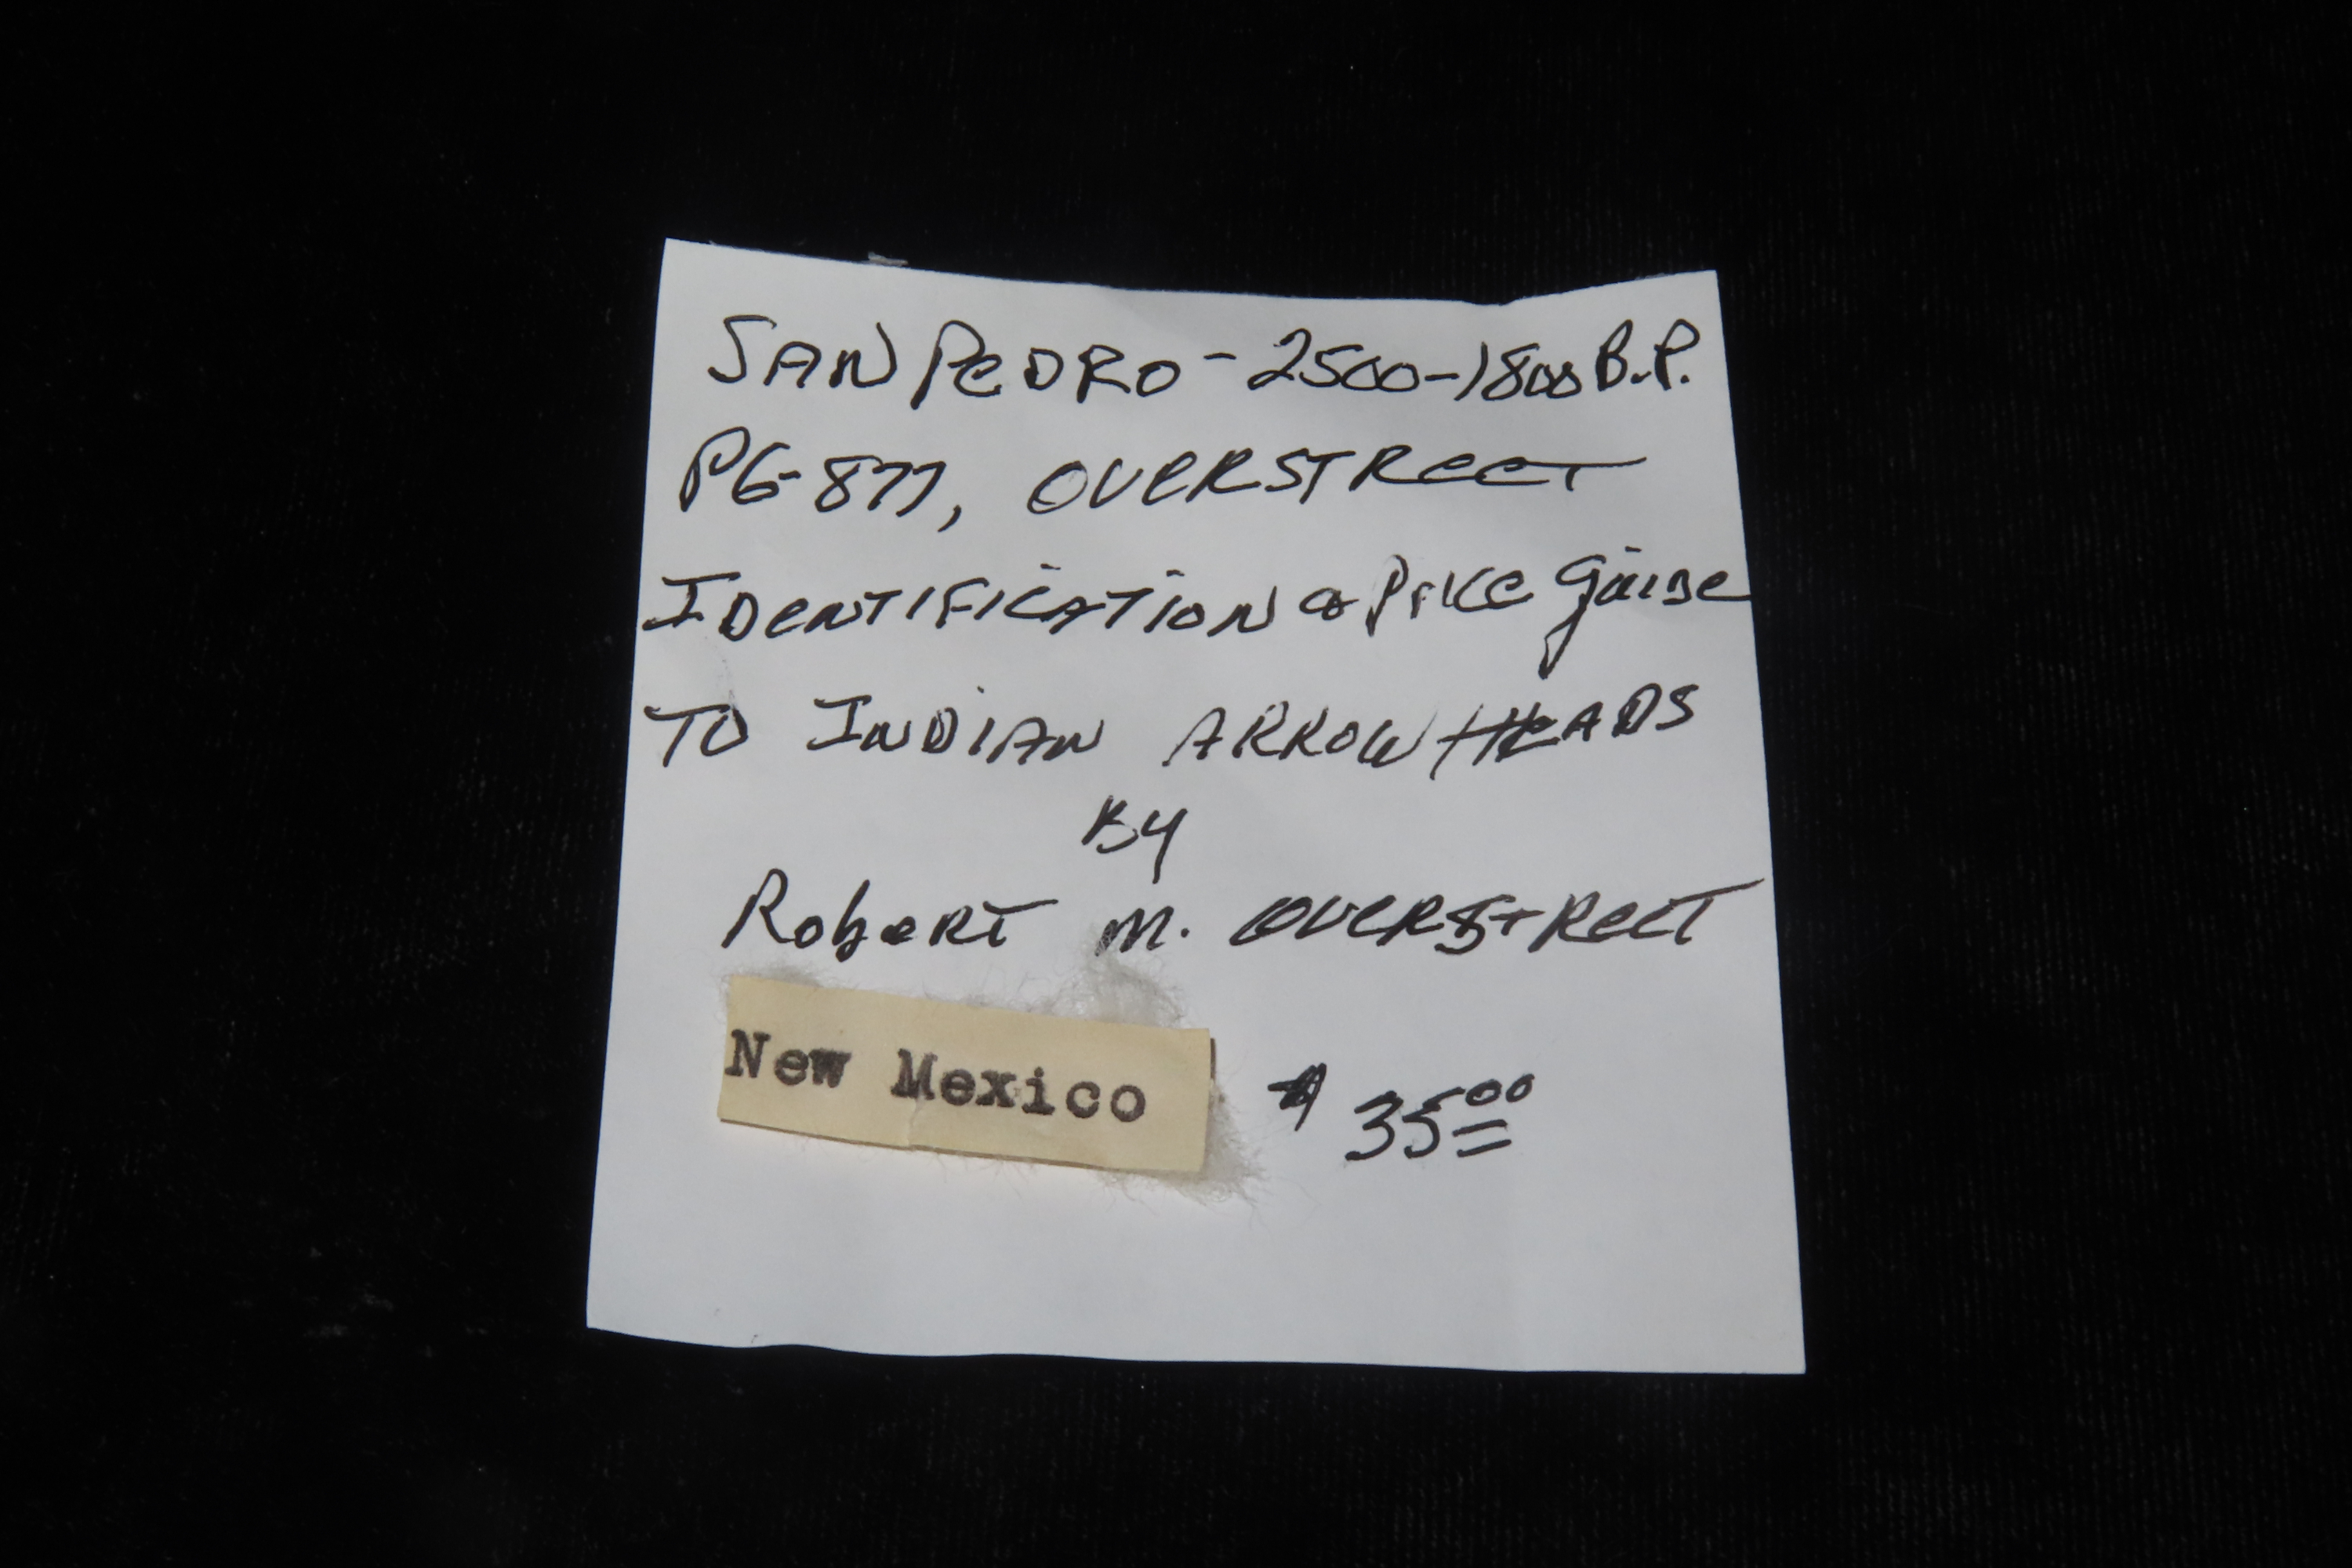 SAN PEDRO - 2500-1800 B.P.
PG-877, OVERSTREET
IDENTIFICATION & PRICE GUIDE
TO INDIAN ARROWHEADS
BY
ROBERT M. OVERSTREET
New Mexico
$ 35.00